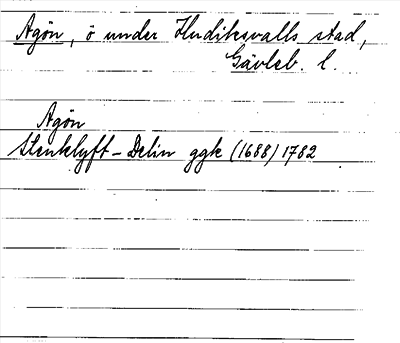 Agön, ö under Hudiksvalls stad,
Gävleb. l.
Agön
Stenklyft - Delin ggk (1688) 1782